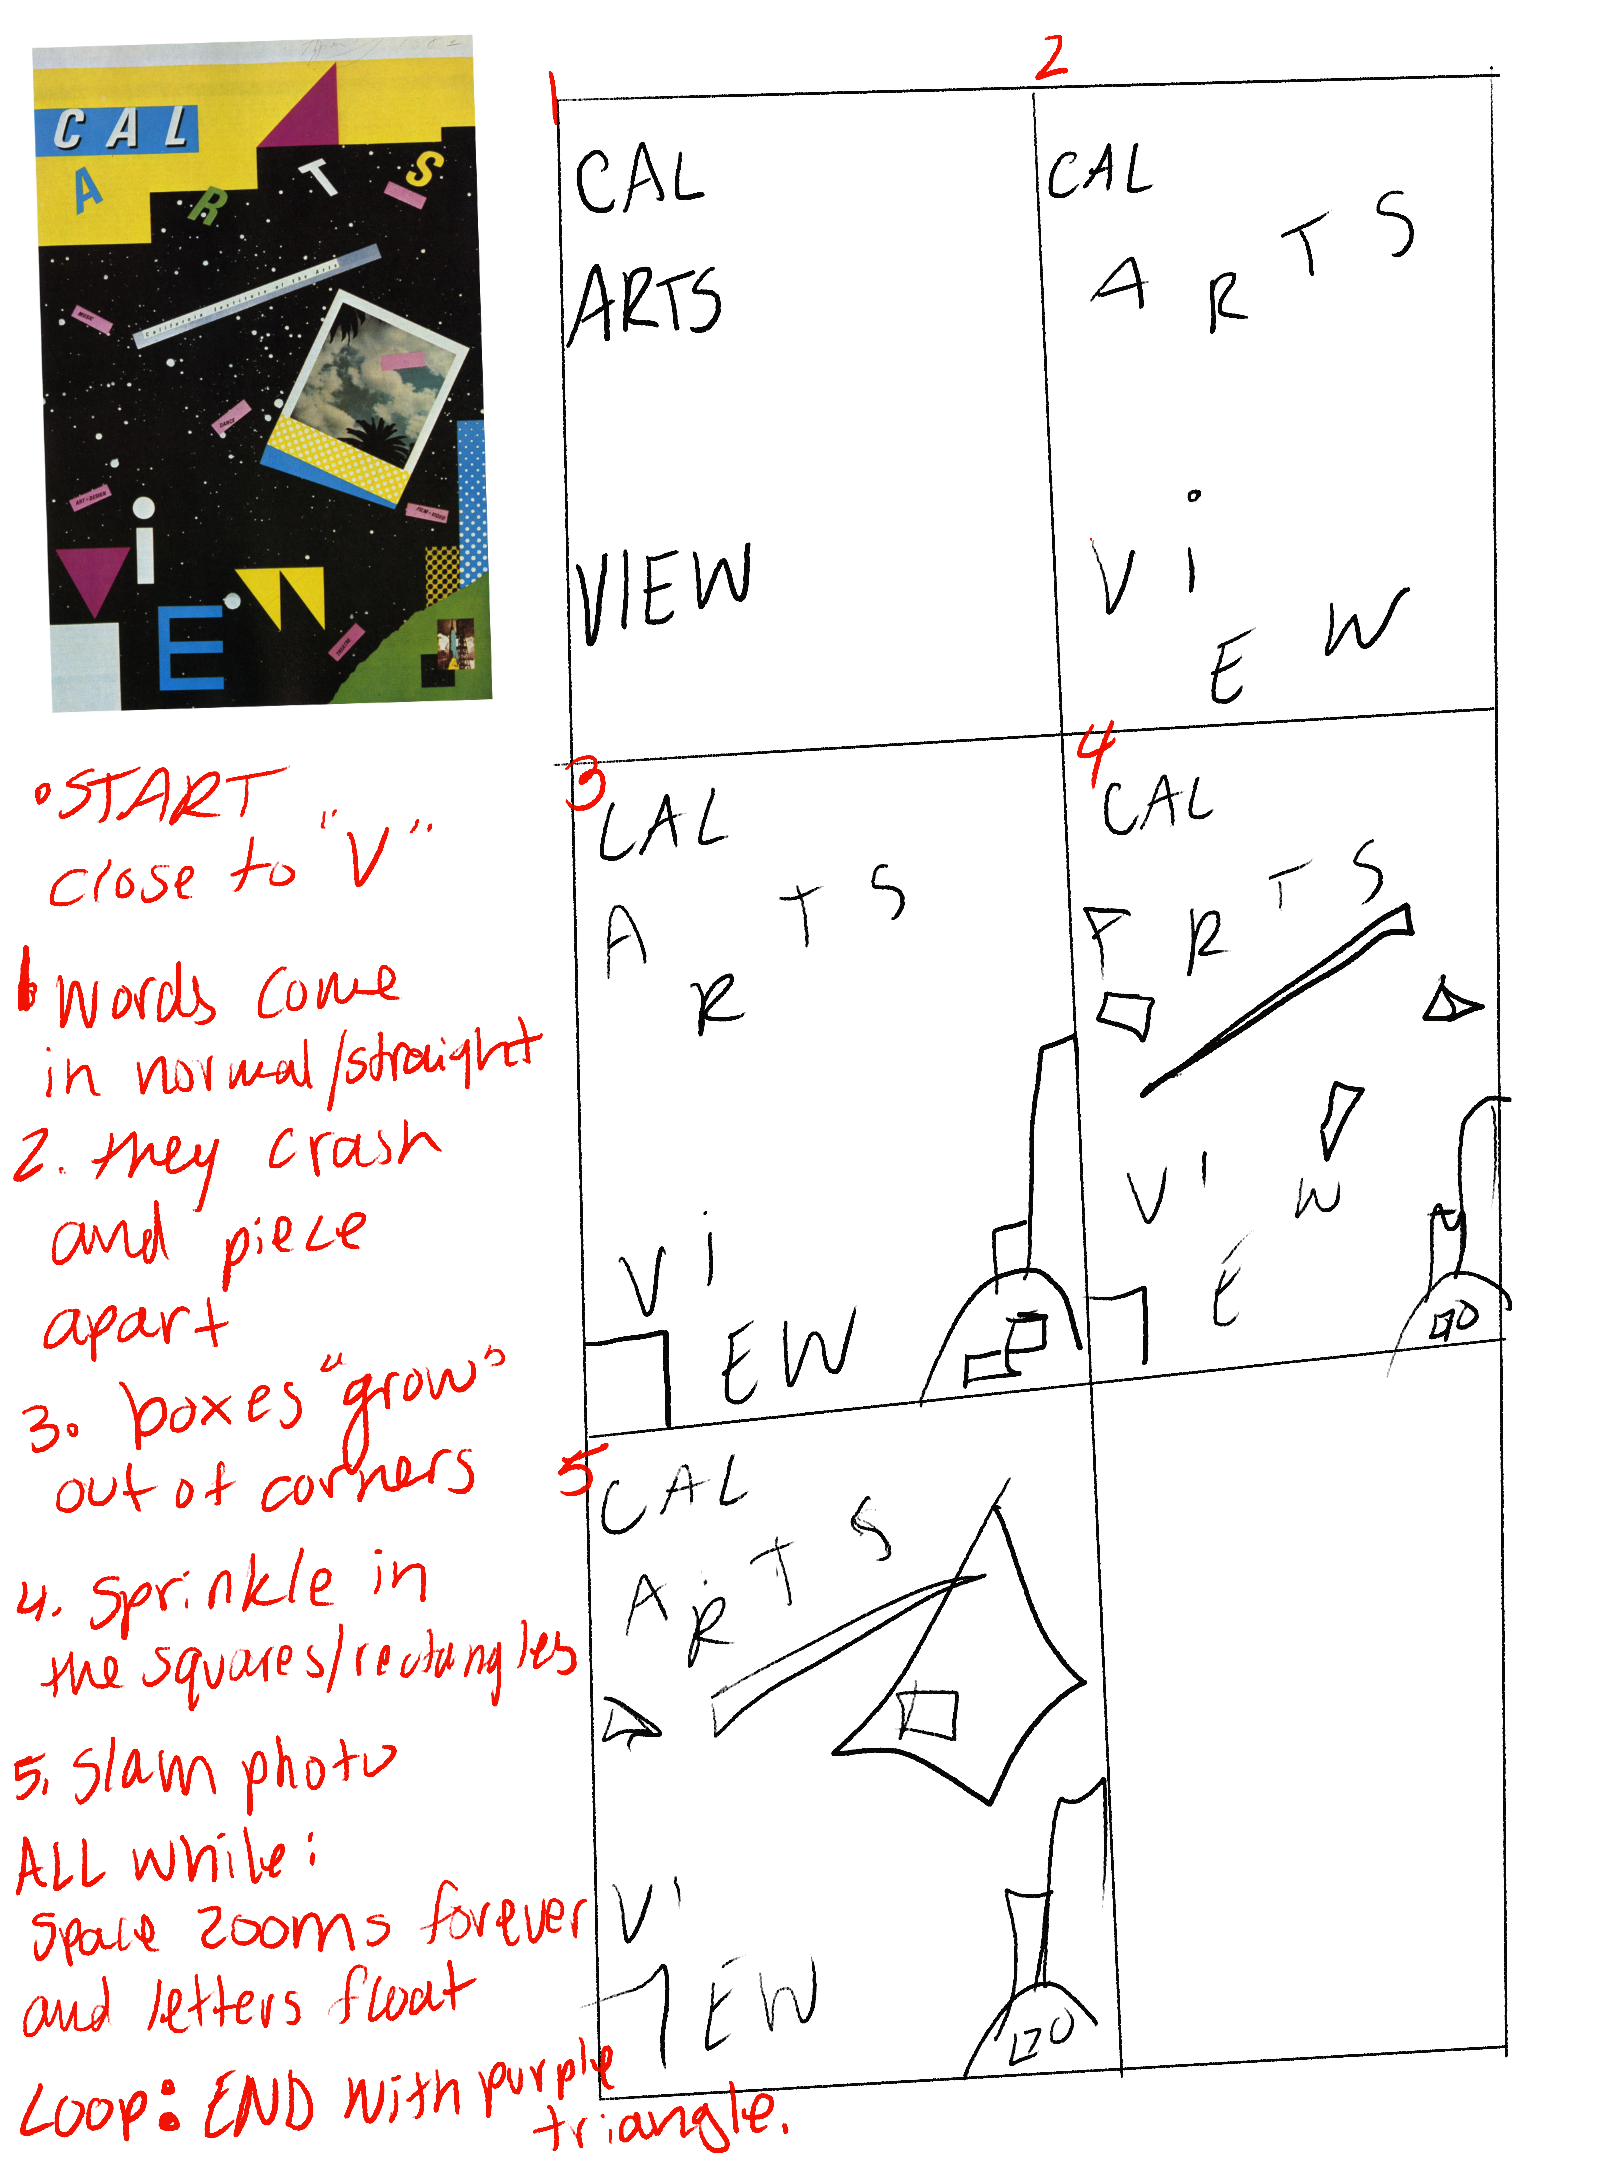 CAL
A R T S
California Institute of the Arts
MUSIC
DANCE
ART+DESIGN
FILM+VIDEO
THEATRE
ViEW
• START
close to "V"
1. Words come
in normal/straight
2. they crash
and piece
apart
3. boxes "grow"
out of corners
4. Sprinkle in
the squares/rectangles
5. Slam photo
ALL while:
Space zooms forever
and letters float
Loop: END with purple
triangle.
1
CAL
ARTS
VIEW
2
CAL
A R T S
V i E W
3
CAL
A R T S
V i
E W
4
CAL
R T S
V i E W
5
CAL
A R T S
V i
E W